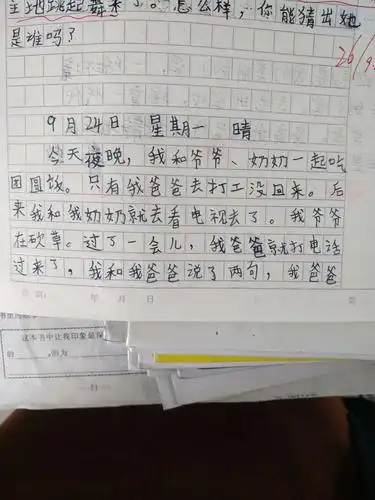 主地跳起舞来了。怎么样,你能猜出她
是谁吗?
26/9
9月24日 星期一 晴
今天夜晚,我和爷爷、奶奶一起吃
团圆饭。只有我爸爸去打工没回来。后
来我和我奶奶就去看电视去了。我爷爷
在砍草。过了一会儿,我爸爸就打电话
过来了,我和我爸爸说了两句,我爸爸
年 月 日
这本书中让我印象最深
的 ,因为